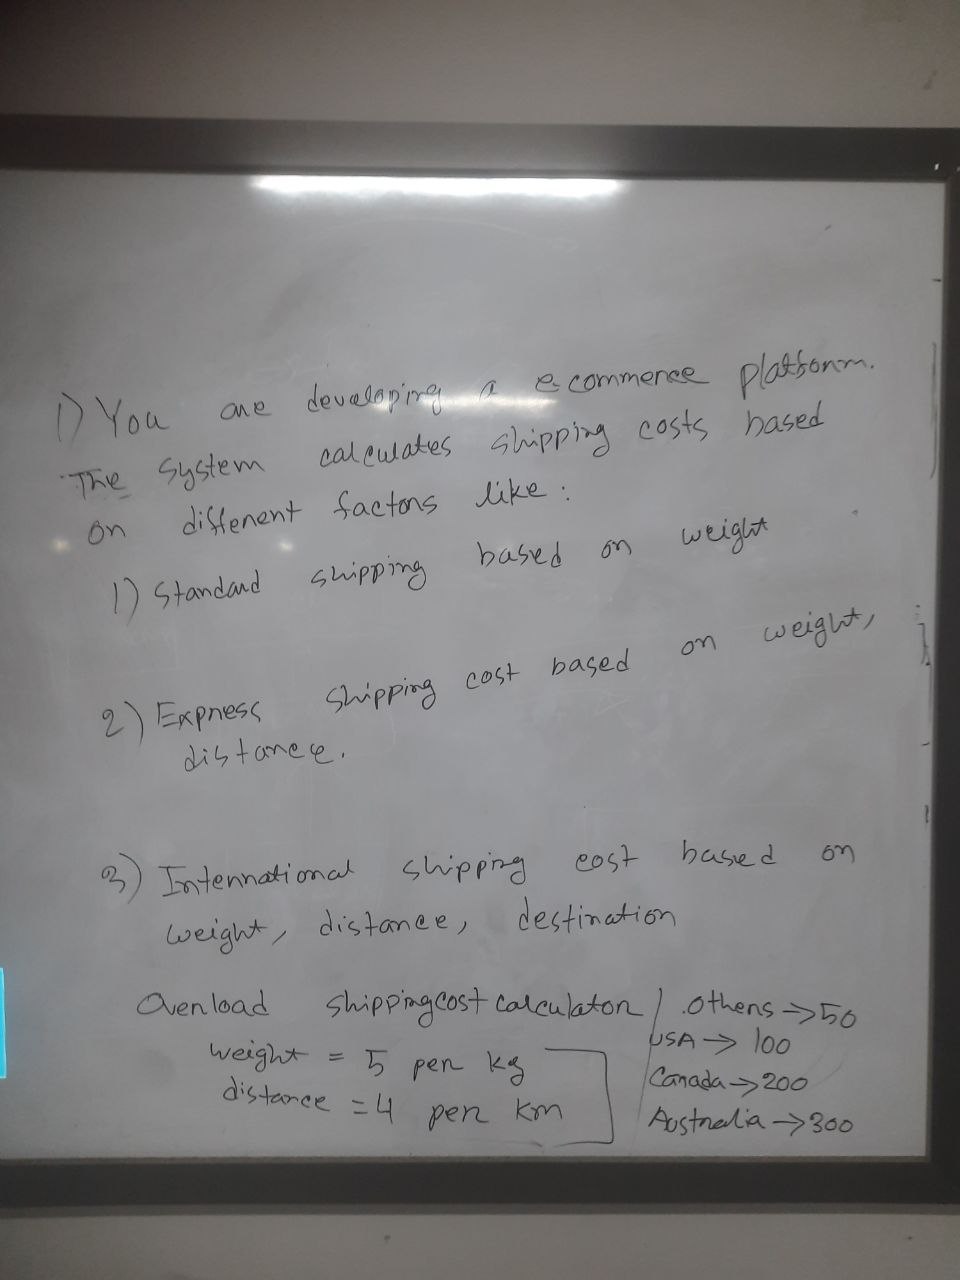 1) You are developing a e-commerce platform.
The system calculates shipping costs based
on different factors like :
1) Standard shipping based on weight
2) Express shipping cost based on weight,
distance.
3) International shipping cost based on
weight, distance, destination
Overload shippingcostcalculator / Others → 50
weight = 5 per kg USA → 100
distance = 4 per km Canada → 200
Australia → 300